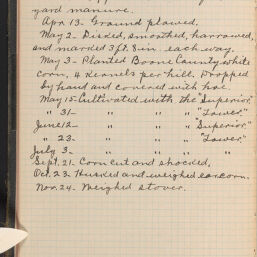 yard manure.
Apr. 13 - Ground plowed.
May 2 - Disked, smoothed, harrowed,
and marked 3 ft. 8 in. each way.
May 3 - Planted Boone County white
corn, 4 kernels per hill. Dropped
by hand and covered with hoe.
May 15 - Cultivated with the "Superior"
" 31 - " " " "Tower"
June 12 - " " " "Superior"
" 23 - " " " "Tower"
July 3 - " " " "
Sept. 21 - Corn cut and shocked,
Oct. 23 - Husked and weighed ear corn.
Nov. 24 - Weighed stover.